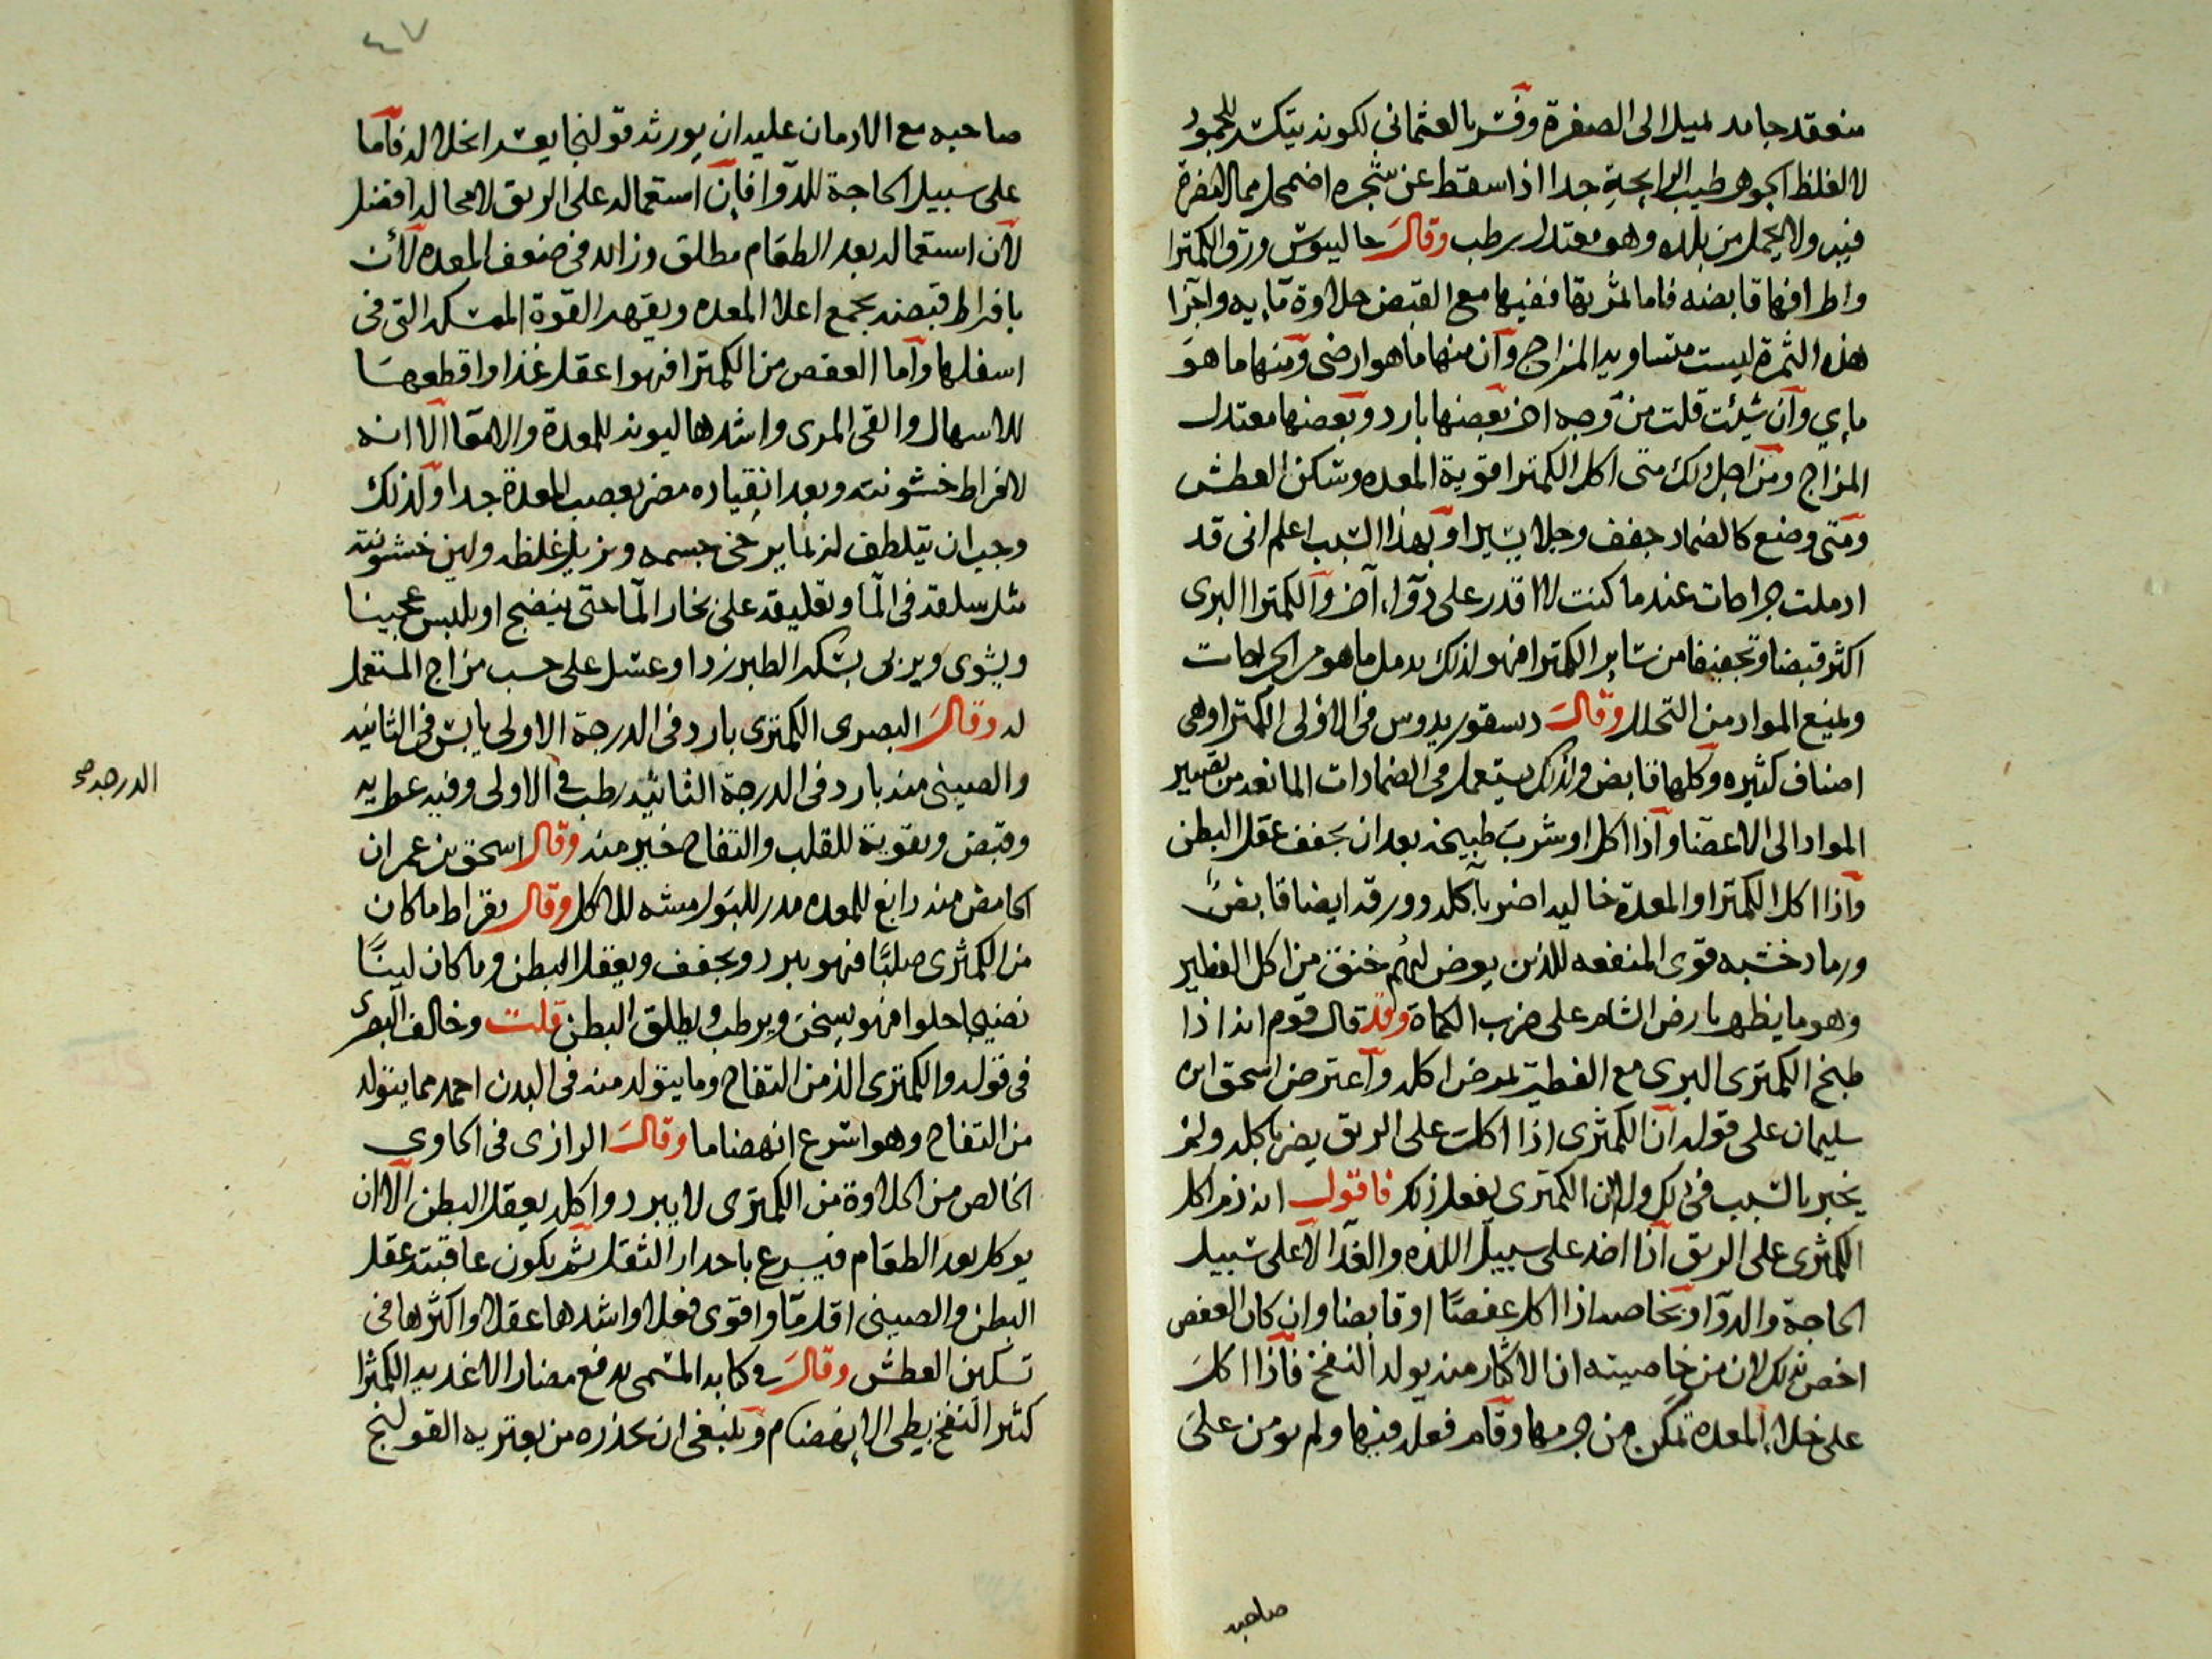 منعقد جامد لميل الى الصفرة وفسر بالعثمانى لكونه يتكسر للجمود
لا لغلظ الجوهر طيب الرايحة جدا اذا سقط عن شجره اضمحل مما لا مضرة
فيه ولا يحمل من بلده وهو معتدل رطب وقال جالينوس ورق الكمثرا
واطرافها قابضه فاما لثمرتها ففيها مع القبض حلاوة مايه واجزا
هذه الثمرة ليست متساويه المزاج وان منها ما هو ارضى ومنها ما هو
مايي وان شيئت قلت من وجه اخر بعضها بارد وبعضها معتدل
المزاج ومن اجل ذلك متى اكل الكمثرا قوية المعده وسكن العطش
ومتى وضع كالضماد جفف وجلا يسيرا وبهذا السبب اعلم انى قد
ادملت جراحات عندما كنت لا اقدر على دوآء آخر والكمثرا البرى
اكثر قبضا وتجفيفا من ساير الكمثرا فهو لذلك يدمل ما هو من الجراحات
ويمنع المواد من التحلل وقال دسقوريدوس فى الاولى الكمثرا وهى
اصناف كثيره وكلها قابض ولذلك يستعمل فى الضمادات المانعه من تصيير
المواد الى الاعضا واذا اكل او شرب طبيخه بعد ان يجفف عقل البطن
واذا اكل الكمثرا والمعدة خاليه اضر بآكله وورقه ايضا قابض
ورماد خشبه قوى المنفعه للذين يعرض لهم خنق من اكل الفطير
وهو ما يظهر بارض الشام على ضرب الكماة وقد قال قوم انه اذا
طبخ الكمثرى البرى مع الفطير لم يضر اكله وآعترض اسحق ابن
سليمان على قوله ان الكمثرى اذا اكلت على الريق يضر باكله ولم
يخبر بالسبب فى ذلك ولا ان الكمثرى يفعل ذلك فاقول انه ذم اكل
الكمثرى على الريق اذا اخذ على سبيل اللذه والغدآ لا على سبيل
الحاجة والدوآ وبخاصه اذا اكل عفصًا او قابضا وان كان العفص
اخص بذلك لان من خاصيته ان الاكثار منه يولد النفخ فاذا اكل
على خلاء المعدة تمكن من جرمها وقام فعله فيها ولم يومن على
صاحبه
٤٧
صاحبه مع الادمان عليه ان يورثه قولنجا يعسر انحلاله فاما
على سبيل الحاجة للدوا فإن استعماله على الريق لا محاله افضل
لان استعماله بعد الطعام مطلق وزايد فى ضعف المعده لأن
بافراط قبضه يجمع اعلا المعده ويقهر القوة الممسكه التى فى
اسفلها واما العفص من الكمثرا فهو اعقل غذا واقطعها
للاسهال والقى المرى واشدها ليونه للمعدة والامعا الا انه
لافراط خشونته وبعد انقياده مضر بعصب المعدة جدا ولذلك
وجب ان يتلطف له بما يرخى جسمه ويزيل غلظه ولين خشونته
مثل سلقه فى المآ وتعليقه على بخار المآ حتى ينضج او يلبس عجينا
ويشوى ويربى بسكر الطبرزد او عسل على حسب مزاج المستعمل
له وقال البصرى الكمثرى بارد فى الدرجة الاولى يابس فى الثانيه
والصينى منه بارد فى الدرجة الثانيه رطب فى الاولى وفيه عطريه
الدرجه صح
وقبض وتقوية للقلب والتفاح خير منه وقال اسحق بن عمران
الحامض منه دابغ للمعده مدر للبول مشه للاكل وقال بقراط ما كان
من الكمثرى صلبًا فهو يبرد ويجفف ويعقل البطن وما كان لينًا
نضيجا حلوا فهو يسخن ويرطب ويطلق البطن قلت وخالف البصرى
فى قوله والكمثرى الذ من التفاح وما يتولد منه فى البدن احمد مما يتولد
من التفاح وهو اسرع انهضاما وقال الرازى فى الحاوى
الخالص من الحلاوة من الكمثرى لا يبرد واكله يعقل البطن الا ان
يوكل بعد الطعام فيسرع باحدار الثقل ثم يكون عاقبته عقل
البطن والصينى اقل مآ واقوى فعلا واشدها عقلا واكثرها فى
تسكين العطش وقال فى كتابه المسمى بدفع مضار الاغديه الكمثرا
كثير النفخ بطى الانهضام وينبغى ان يحذره من يعتريه القولنج